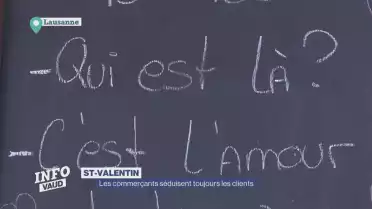 Lausanne
-Qui est là?
-C'est l'amour
INFO
VAUD
ST-VALENTIN
Les commerçants séduisent toujours les clients